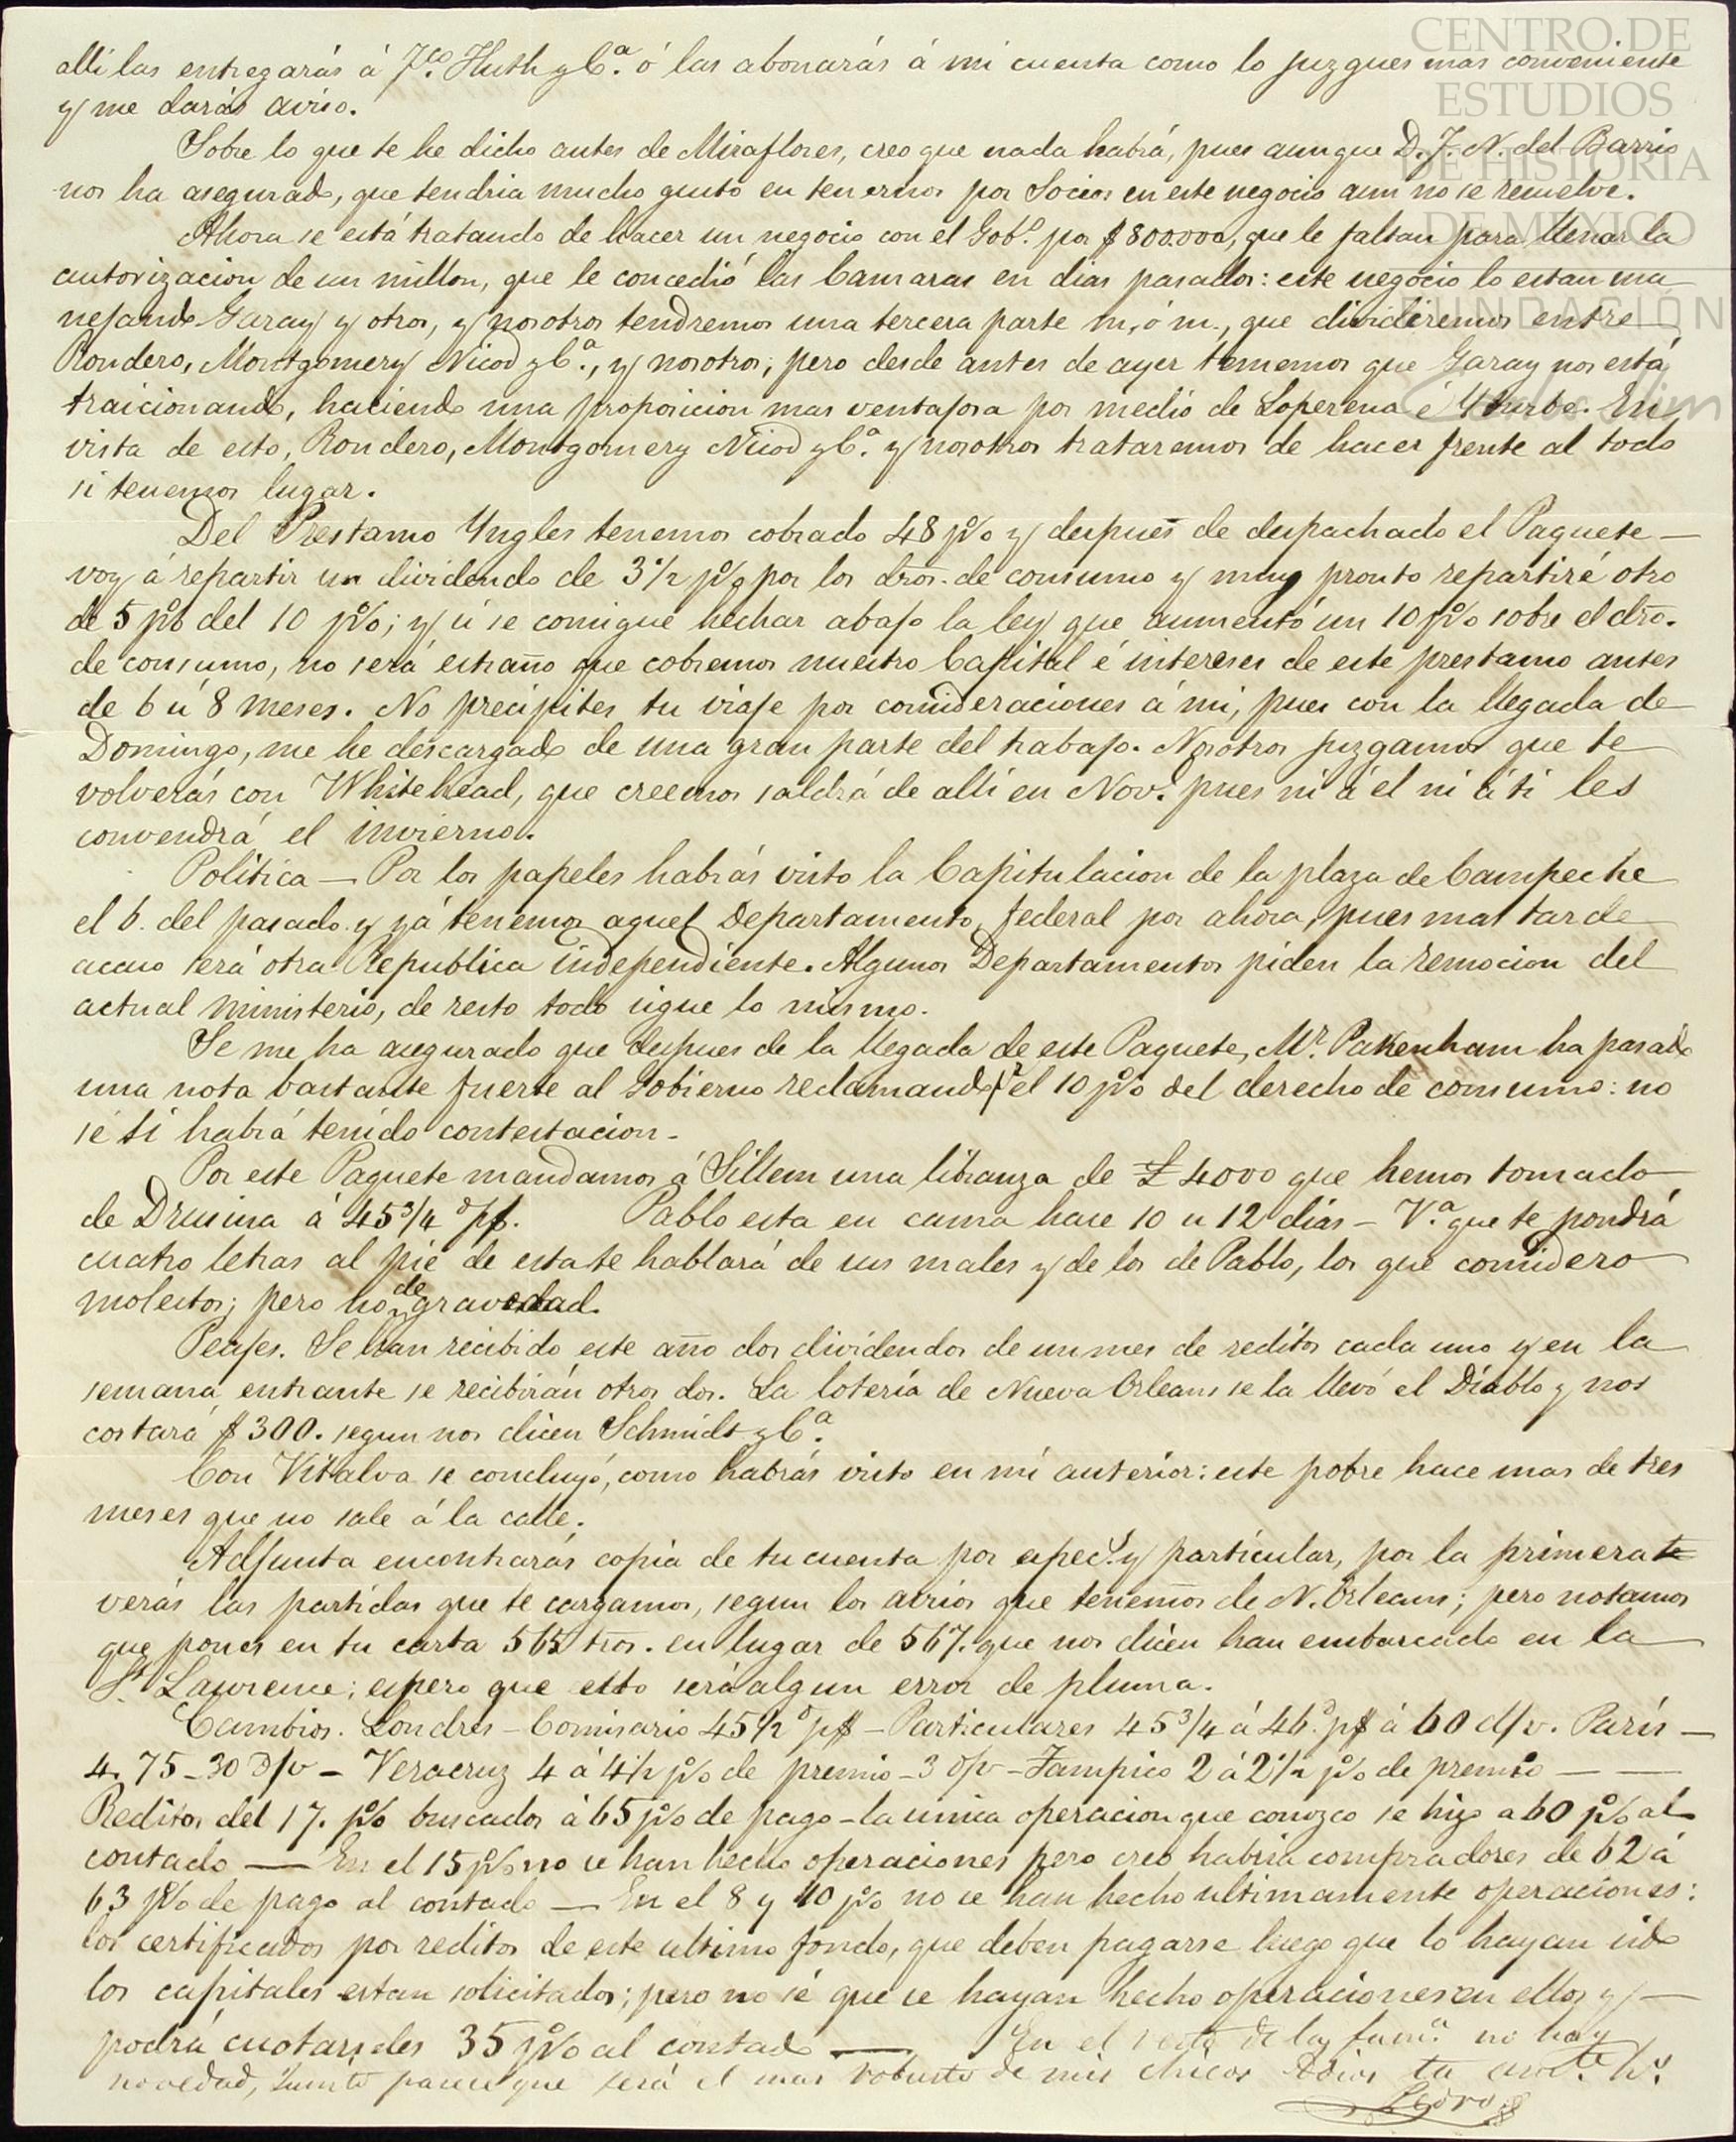 CENTRO DE
ESTUDIOS
DE HISTORIA
DE MEXICO
FUNDACIÓN
Carlos Slim
alli las entregarás á F.co Huth y C.a ó las abonarás á mi cuenta como lo juzgues mas conveniente
y me darás aviso.
Sobre lo que te he dicho antes de Miraflores, creo que nada habrá, pues aunque D. J. N. del Barrio
nos ha asegurado, que tendria mucho gusto en tenernos por Socios en este negocio aun no se resuelve.
Ahora se está tratando de hacer un negocio con el Gob.o por $800.000, que le faltan para llenar la
autorizacion de un millon, que le concedió las Camaras en dias pasados: este negocio lo estan ma-
nejando Garay y otros, y nosotros tendremos una tercera parte m, ó m., que dividiremos entre
Rondero, Montgomery Nicod y C.a, y nosotros; pero desde antes de ayer tememos que Garay nos está
traicionando, haciendo una proposicion mas ventajosa por medio de Loperena é Yturbe. En
vista de esto, Rondero, Montgomery Nicod y C.a y nosotros trataremos de hacer frente al todo
si tenemos lugar.
Del Prestamo Yngles tenemos cobrado 48 p% y despues de despachado el Paquete —
voy á repartir un dividendo de 3 1/2 p% por los dros. de consumo y muy pronto repartiré otro
de 5 p% del 10 p%; y si se consigue hechar abajo la ley que aumentó un 10 p% sobre el dro.
de consumo, no será estraño que cobremos nuestro Capital é intereses de este prestamo antes
de 6 ú 8 meses. No precipites tu viaje por consideraciones á mi, pues con la llegada de
Domingo, me he descargado de una gran parte del trabajo. Nosotros juzgamos que te
volverás con Whitehead, que creemos saldrá de alli en Nov.e pues ni á él ni á ti les
convendrá el invierno.
Politica — Por los papeles habrás visto la Capitulacion de la plaza de Campeche
el 6. del pasado y yá tenemos aquel Departamento, federal por ahora, pues mas tarde
acaso será otra Republica independiente. Algunos Departamentos piden la remocion del
actual ministerio, de resto todo sigue lo mismo.
Se me ha asegurado que despues de la llegada de este Paquete, Mr. Pakenham ha pasado
una nota bastante fuerte al Gobierno reclamando el 10 p% del derecho de consumo: no
sé si habrá tenido contestacion —
Por este Paquete mandamos á Sillem una libranza de £ 4000 que hemos tomado
de Drusina á 45 3/4 d p$. Pablo esta en cama hace 10 u 12 dias — V.a que te pondrá
cuatro letras al pie de esta te hablará de sus males y de los de Pablo, los que considero
molestos; pero no de gravedad.
Peajes. Se han recibido este año dos dividendos de un mes de reditos cada uno y en la
semana entrante se recibirán otros dos. La lotería de Nueva Orleans se la llevó el Diablo y nos
costará $300. segun nos dicen Schmidt y C.a
Con Vitalva se concluyó, como habrás visto en mi anterior: este pobre hace mas de tres
meses que no sale á la calle.
Adjunta encontrarás copia de tu cuenta por espec.s y particular, por la primera te
verás las partidas que te cargamos, segun los avisos que tenemos de N. Orleans; pero notamos
que pones en tu carta 565 tros. en lugar de 567. que nos dicen han embarcado en la
St. Laurence; espero que esto será algun error de pluma.
Cambios. Londres — Comisario 45 1/2 d p$ — Particulares 45 3/4 á 46 d p$ á 60 d/v. París —
4. 75 — 30 d/v — Veracruz 4 á 4 1/2 p% de premio — 3 d/v — Tampico 2 á 2 1/2 p% de premio — —
Reditos del 17. p% buscados á 65 p% de pago — la unica operacion que conozco se hizo a 60 p% al
contado — En el 15 p% no se han hecho operaciones pero creo habria compradores de 62 á
63 p% de pago al contado — En el 8 y 10 p% no se han hecho ultimamente operaciones:
los certificados por reditos de este ultimo fondo, que deben pagarse luego que lo hayan sido
los capitales estan solicitados; pero no sé que se hayan hecho operaciones en ellos y —
podrá cuotarseles 35 p% al contado — En el resto de la fam.a no hay
novedad, parece que será el mas robusto de mis chicos Adios tu h.o
Pedro